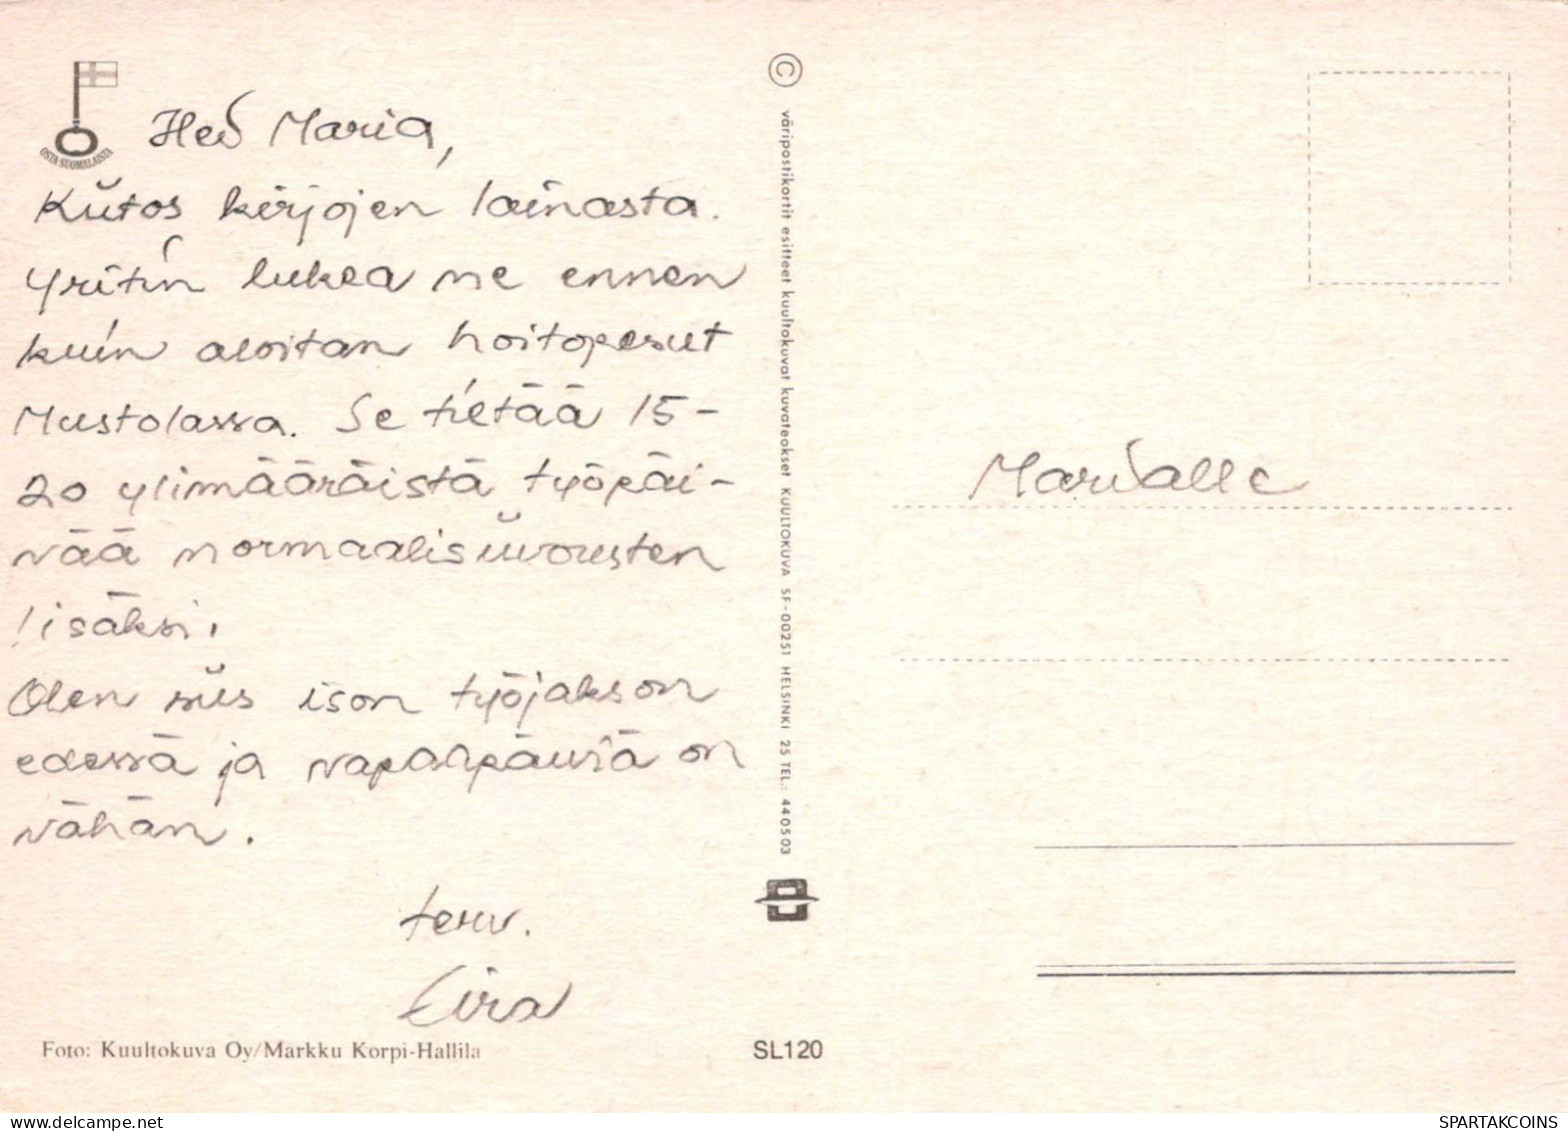 OSTA SUOMALAISTA
Hei Maria,
Kiitos kirjojen lainasta.
Yritin lukea ne ennen
kuin aloitan hoitopesut
Mustolassa. Se tietää 15-
20 ylimääräistä työpäi-
vää normaalisiivousten
lisäksi.
Olen siis ison työjakson
edessä ja vapaapäiviä on
vähän.
terv.
Eira
Foto: Kuultokuva Oy/Markku Korpi-Hallila
© väripostikortit esitteet kuultokuvat kuvateokset KUULTOKUVA SF-00251 HELSINKI 25 TEL.: 440503
SL120
Marialle
SPARTAKCOINS
delcampe.net